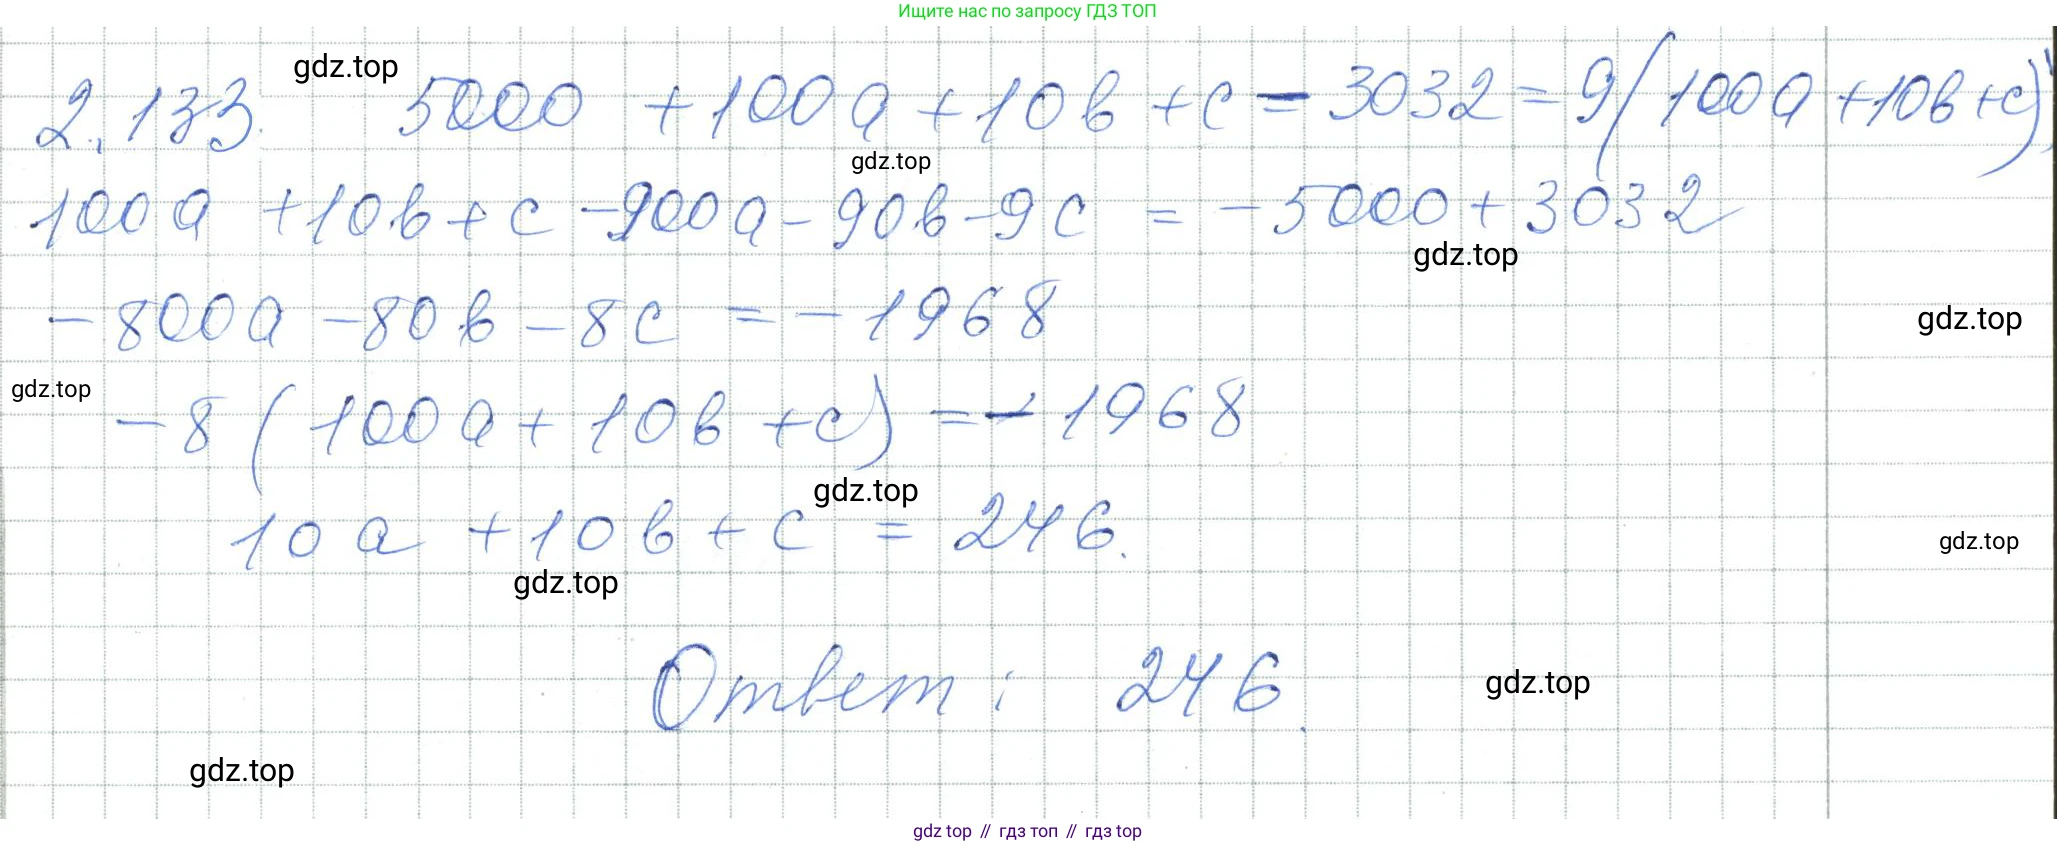 Ищите нас по запросу ГДЗ ТОП
gdz.top
2.133. 5000 + 100a + 10b + c - 3032 = 9(100a + 10b + c),
gdz.top
100a + 10b + c - 900a - 90b - 9c = - 5000 + 3032
gdz.top
- 800a - 80b - 8c = - 1968
gdz.top
gdz.top
- 8 (100a + 10b + c) = - 1968
gdz.top
10a + 10b + c = 246.
gdz.top
gdz.top
Ответ: 246.
gdz.top
gdz.top
gdz top // гдз топ // гдз top